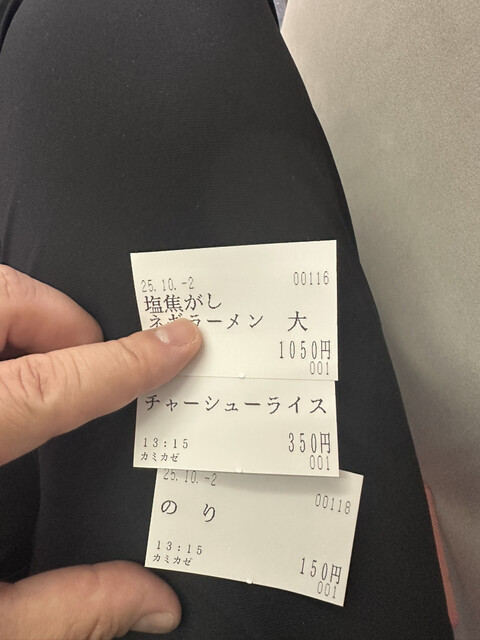 25.10.-2 00116
塩焦がし
ネギラーメン 大
1050円
001
チャーシューライス
13:15 350円
カミカゼ 001
25.10.-2 00118
のり
13:15 150円
カミカゼ 001